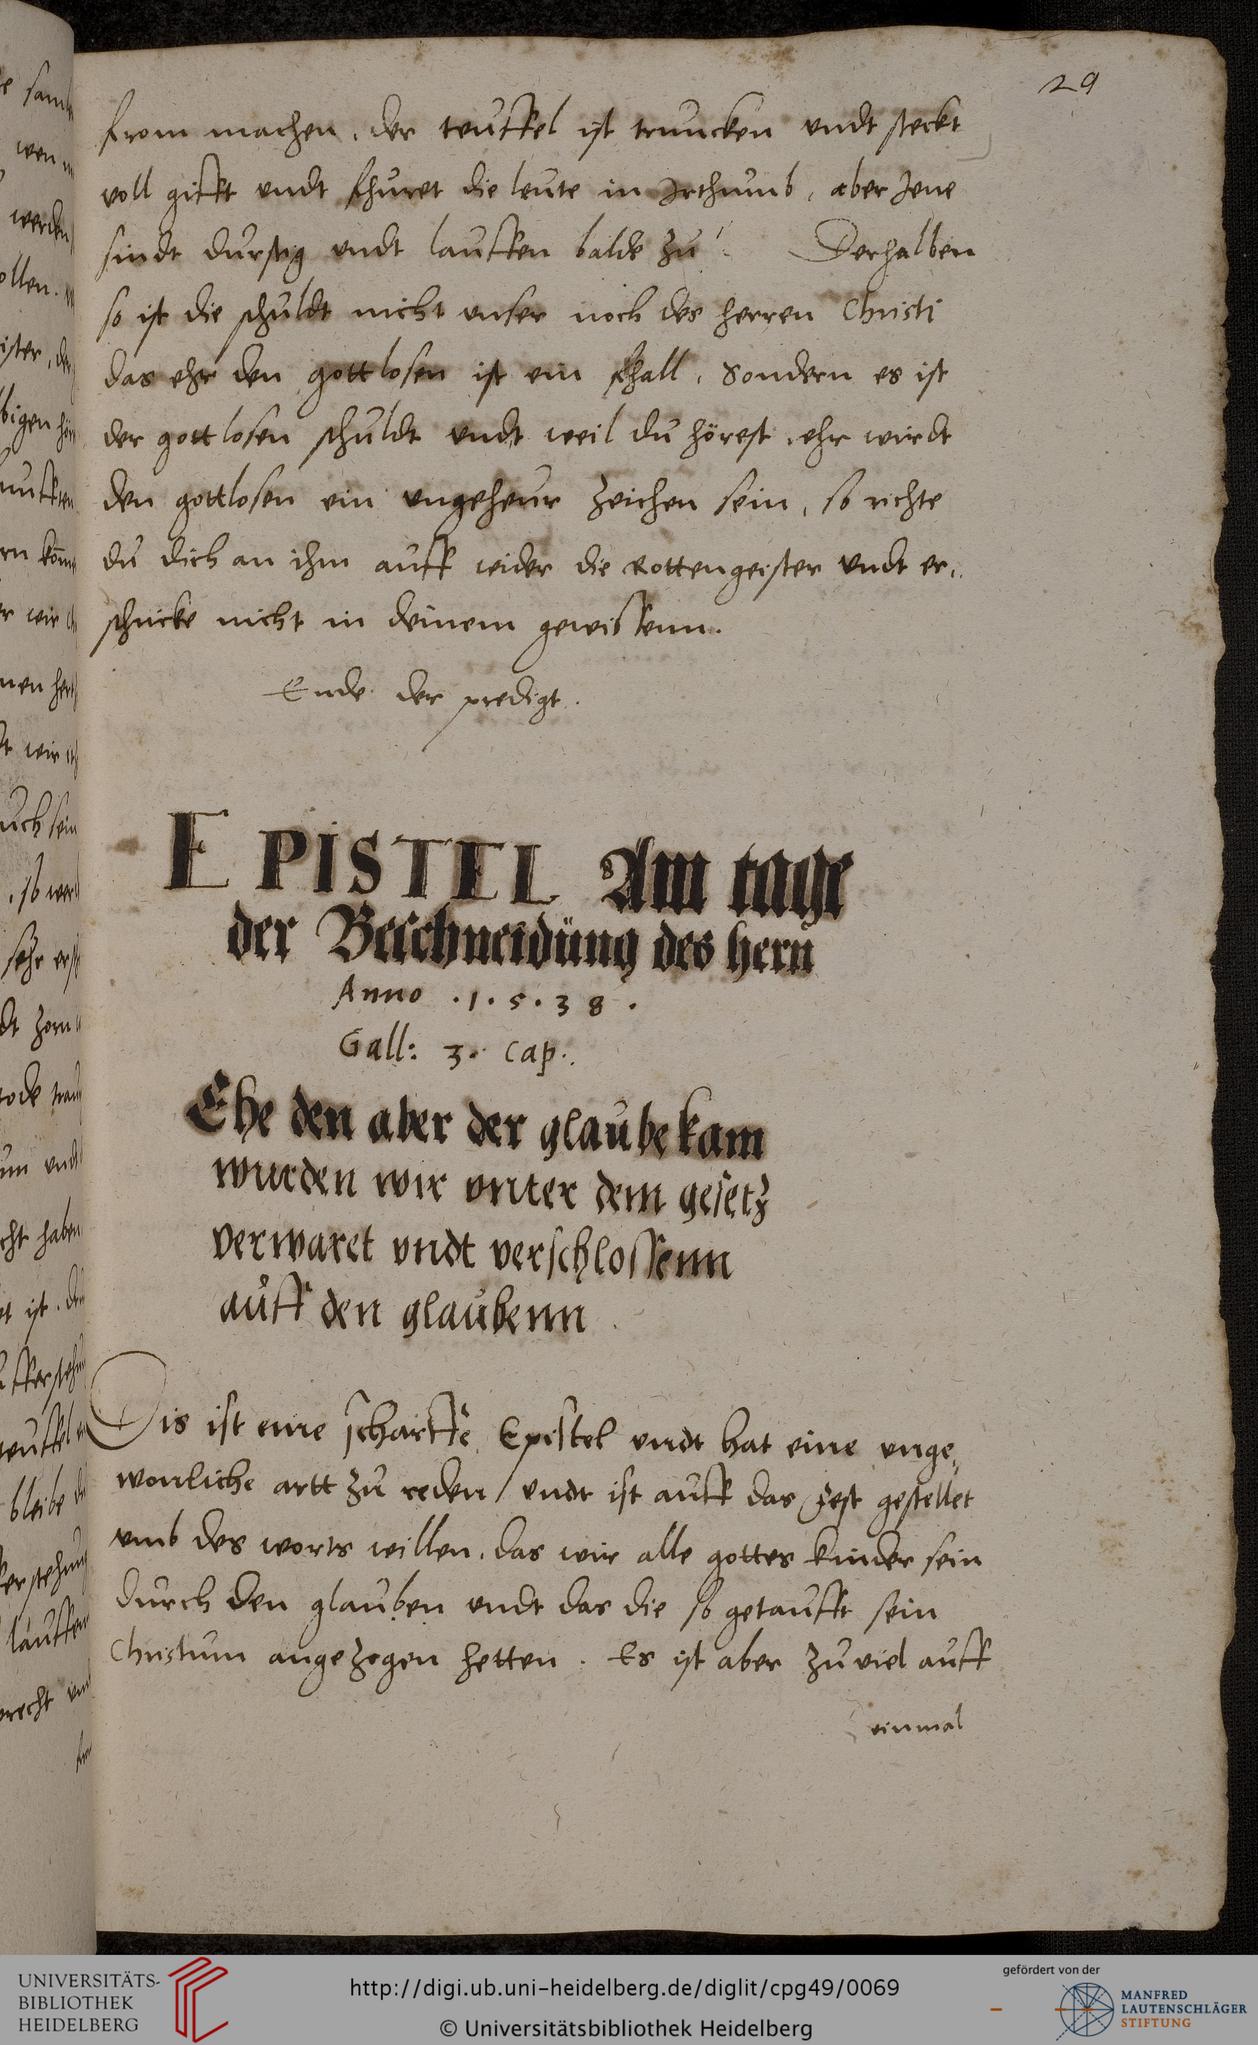 29
from machen, der teuffel ist truncken undt steckt
voll gifft undt fhuret die leute in Irthumb, aber Jene
sindt durstig undt lauffen balde zu. Derhalben
so ist die schuldt nicht unser noch des herren Christi
das ehr den gottlosen ist ein fhall, Sondern es ist
der gottlosen schuldt undt weil du hörest, ehr wirdt
den gottlosen ein ungeheur zeichen sein, so richte
du dich an ihm auff wider die Rottengeister undt er,
schricke nicht in deinem gewissenn.
Ende der predigt.
EPISTEL Am tage
der Beschneidüng des hern
Anno .1.5.38.
Gall: 3. cap.
Ehe den aber der glaube kam
wurden wir unter dem gesetz
verwaret undt verschlossenn
auff den glaubenn
Dis ist eine scharffe Epistel undt hat eine unge,
wonliche artt zu reden / undt ist auff das fest gestellet
umb des worts willen, das wir alle gottes kinder sein
durch den glauben undt das die so getaufft sein
Christum angezogen hetten. Es ist aber zu viel auff
einmal
UNIVERSITÄTS-
BIBLIOTHEK
HEIDELBERG
http://digi.ub.uni-heidelberg.de/diglit/cpg49/0069
© Universitätsbibliothek Heidelberg
gefördert von der
MANFRED
LAUTENSCHLÄGER
STIFTUNG